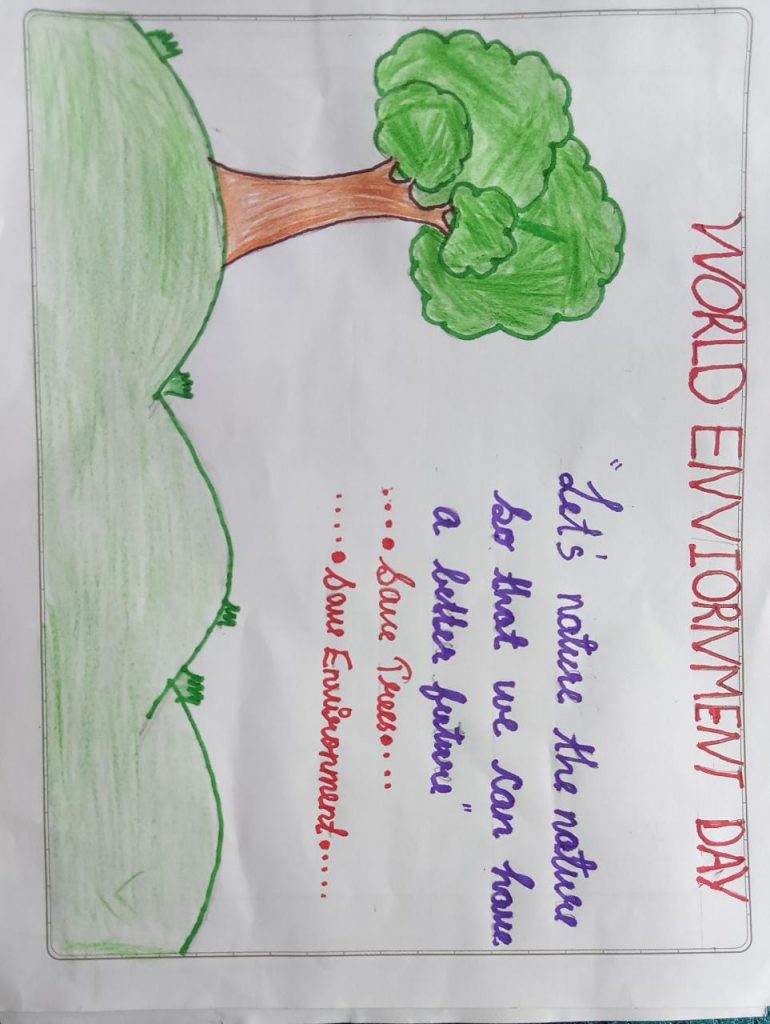 WORLD ENVIORNMENT DAY
"Let's nature the nature
so that we can have
a better future"
....Save Trees....
.....Save Environment.....